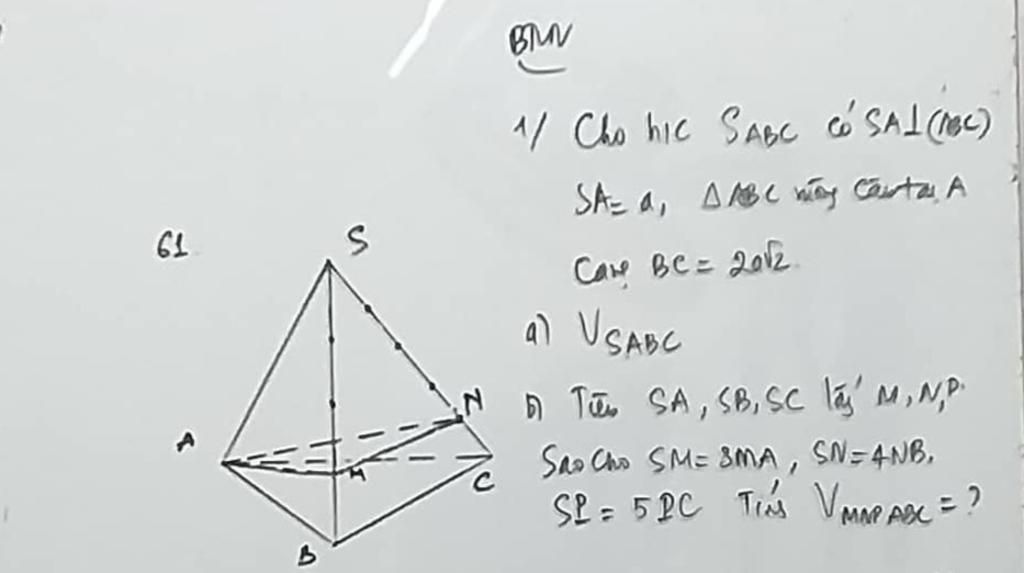 BTVN
1/ Cho h/c SABC có SA⊥(ABC)
SA = a, Δ ABC vuông cân tại A
Cạnh BC = 2a√2.
a) V_SABC
b) Trên SA, SB, SC lấy M, N, P.
Sao cho SM = 3MA, SN = 4NB.
SP = 5PC Tính V_MNP ABC = ?
61
S
A
N
M
C
B